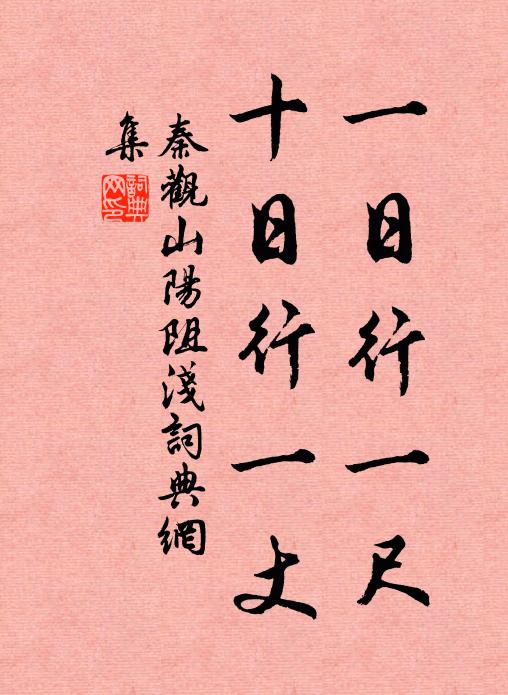 一日行一尺
十日行一丈
秦觀山陽阻淺詞典網
集
詞典
网印